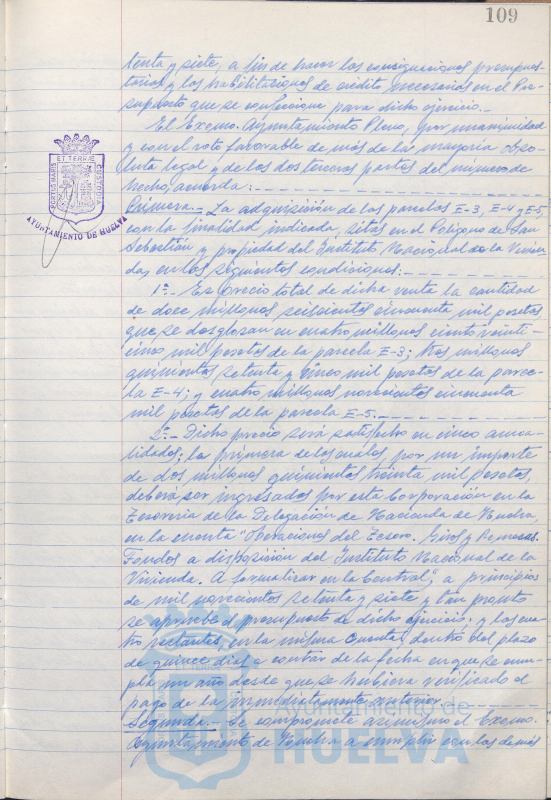 109
tenta y siete, a fin de hacer las consignaciones presupues-
tarias y las habilitaciones de crédito necesarias en el Pre-
supuesto que se confeccione para dicho ejercicio.-
El Excmo. Ayuntamiento Pleno, por unanimidad
y con el voto favorable de más de la mayoria abso-
luta legal y de las dos terceras partes del número de
hecho, acuerda:
Primera.- La adquisición de las parcelas E-3, E-4 y E-5,
con la finalidad indicada, sitas en el Polígono de San
Sebastián y propiedad del Instituto Nacional de la Vivien-
da, en las siguientes condiciones:
1ª.- Es precio total de dicha venta la cantidad
de doce millones seiscientas cincuenta mil pesetas
que se desglosan en cuatro millones ciento veinti-
cinco mil pesetas de la parcela E-3; tres millones
quinientas setenta y cinco mil pesetas de la parce-
la E-4; y cuatro millones novecientas cincuenta
mil pesetas de la parcela E-5.-
2ª.- Dicho precio será satisfecho en cinco anua-
lidades; la primera de las cuales, por un importe
de dos millones quinientas treinta mil pesetas,
deberá ser ingresados por esta Corporación en la
Tesoreria de la Delegación de Hacienda de Huelva,
en la cuenta "Operaciones del Tesoro. Giros y Remesas.
Fondos a disposición del Instituto Nacional de la
Vivienda. A formalizar en la Central; a principios
de mil novecientos setenta y siete y tan pronto
se apruebe el presupuesto de dicho ejercicio; y las cua-
tro restantes, en la misma Cuenta, dentro del plazo
de quince días a contar de la fecha en que se cum-
pla un año desde que se hubiera verificado el
pago de la inmediatamente anterior.
Segunda.- Se compromete asimismo el Excmo.
Ayuntamiento de Huelva a cumplir con las demás
PORTUS MARIS ET TERRAE CUSTODIA
AYUNTAMIENTO DE HUELVA
Ayuntamiento de
HUELVA